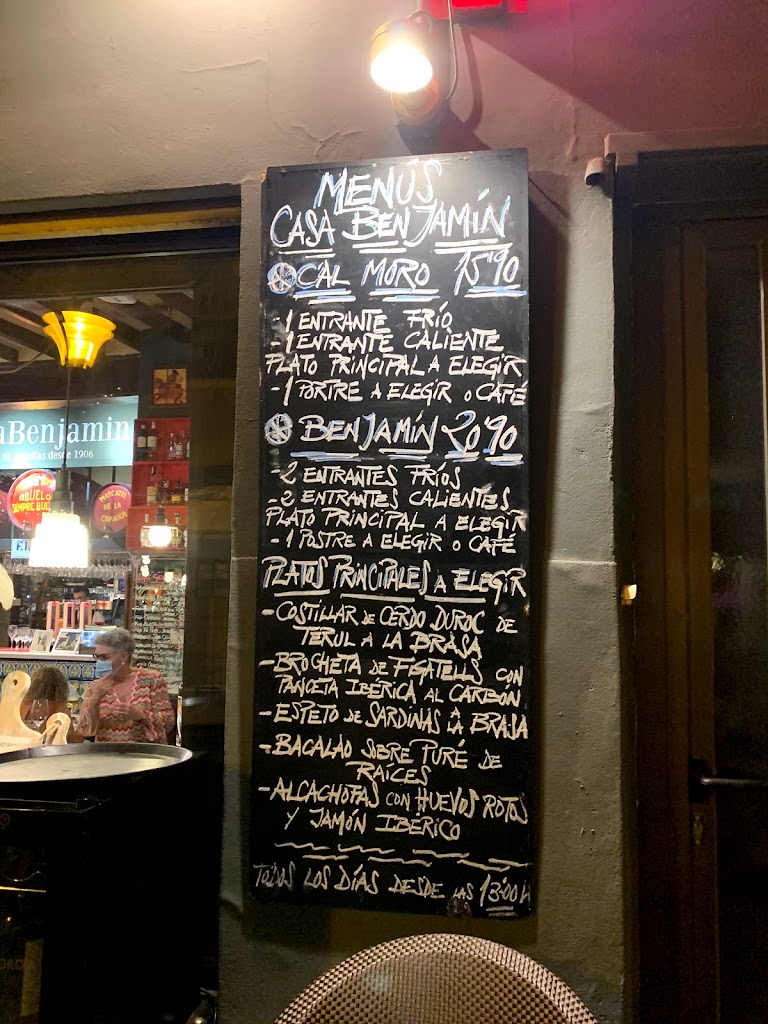 MENÚS
CASA BENJAMÍN
CAL MORO 15'90
- 1 ENTRANTE FRÍO
- 1 ENTRANTE CALIENTE
PLATO PRINCIPAL A ELEGIR
- 1 PORTRE A ELEGIR O CAFÉ
BENJAMÍN 20'90
- 2 ENTRANTES FRÍOS
- 2 ENTRANTES CALIENTES
PLATO PRINCIPAL A ELEGIR
- 1 POSTRE A ELEGIR O CAFÉ
PLATOS PRINCIPALES A ELEGIR
- COSTILLAR DE CERDO DUROC DE
TERUL A LA BRASA
- BROCHETA DE FIGATELLS CON
PANCETA IBÉRICA AL CARBÓN
- ESPETO DE SARDINAS A LA BRASA
- BACALAO SOBRE PURÉ DE
RAÍCES
- ALCACHOFAS CON HUEVOS ROTOS
Y JAMÓN IBÉRICO
TODOS LOS DÍAS DESDE LAS 13:00 H
aBenjamin
desde 1906
ABUELO
SIEMPRE
MOSCATEL
DE LA